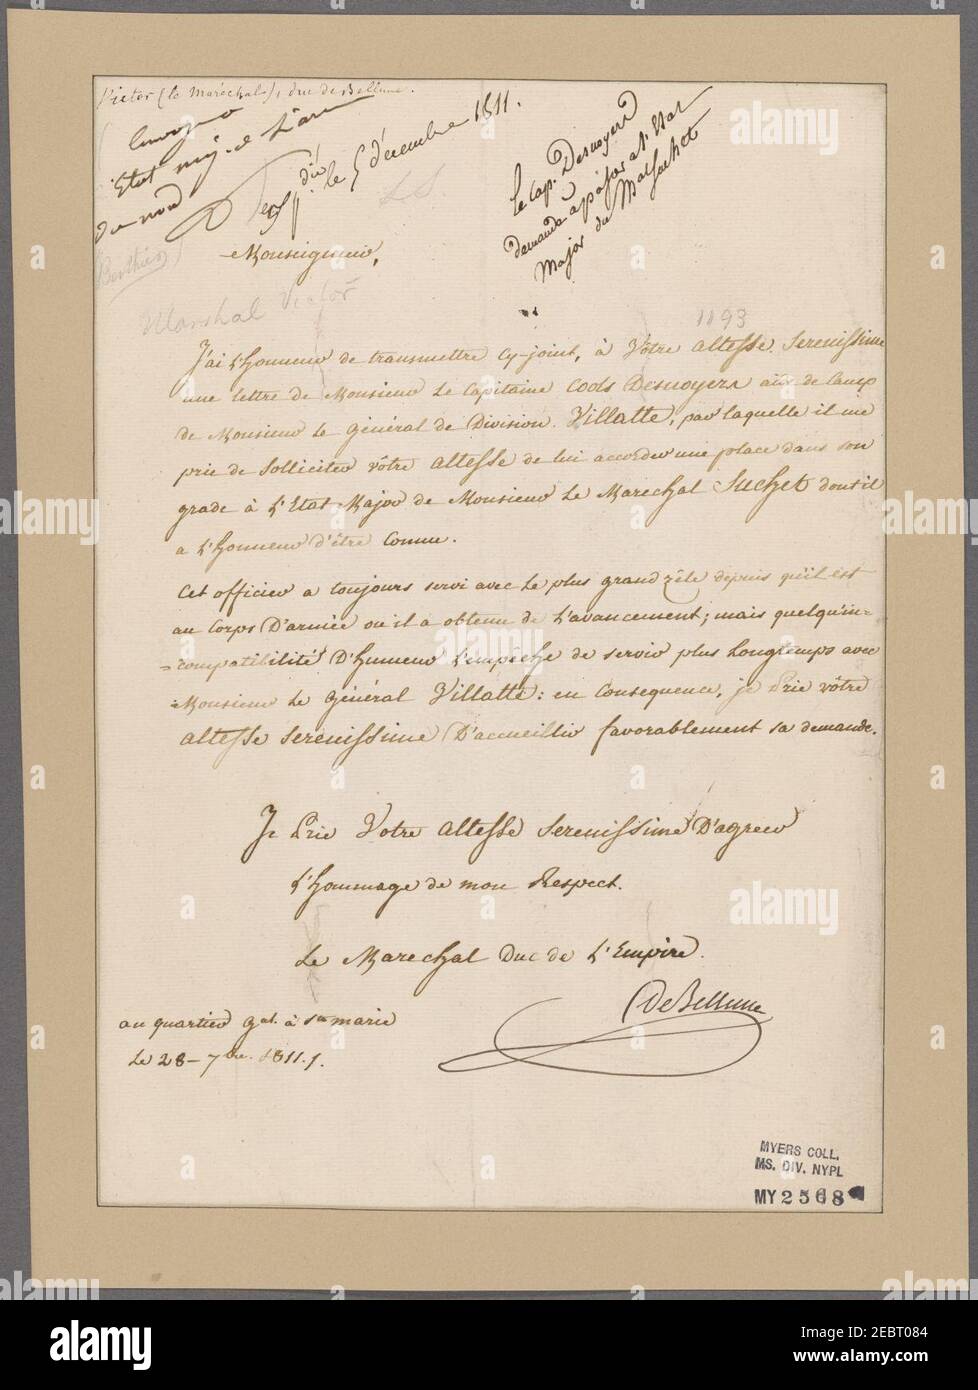 Victor (le Maréchal), duc de Bellune.
Envoyé
Etat maj. de L'ar
du nord
le 5 décembre 1811.
LS.
le Cap. Desnoyers
demande à passer à l'Etat
Major du Mal Suchet
Monseigneur,
Berthier
Marshal Victor
1193
J'ai L'honneur de transmettre cy-joint, à Vôtre altesse Serenissime
une lettre de Monsieur Le Capitaine Cools Desnoyers aide de Camp
de Monsieur Le Général de Division Villatte, par laquelle il me
prie de Solliciter vôtre altesse de lui accorder une place dans son
grade à L'Etat Major de Monsieur Le Marechal Suchet dont il
a L'honneur d'être Connu.
Cet officier a toujours servi avec Le plus grand zêle depuis qu'il est
au Corps D'armée ou il a obtenu de L'avancement; mais quelqu'in=
=compatibilité D'humeur L'empêche de servir plus Longtemps avec
=Monsieur Le Général Villatte: en Consequence, je Prie vôtre
altesse Serenissime D'accueillir favorablement sa demande.
Je Prie Votre altesse Serenissime D'agreer
L'hommage de mon Respect.
Le Marechal Duc de L'Empire.
De Bellune
au quartier gal. à Sta marie
Le 28 - 7bre. 1811.
MYERS COLL.
MS. DIV. NYPL
MY 2568
alamy
Image ID: 2EBT084
www.alamy.com